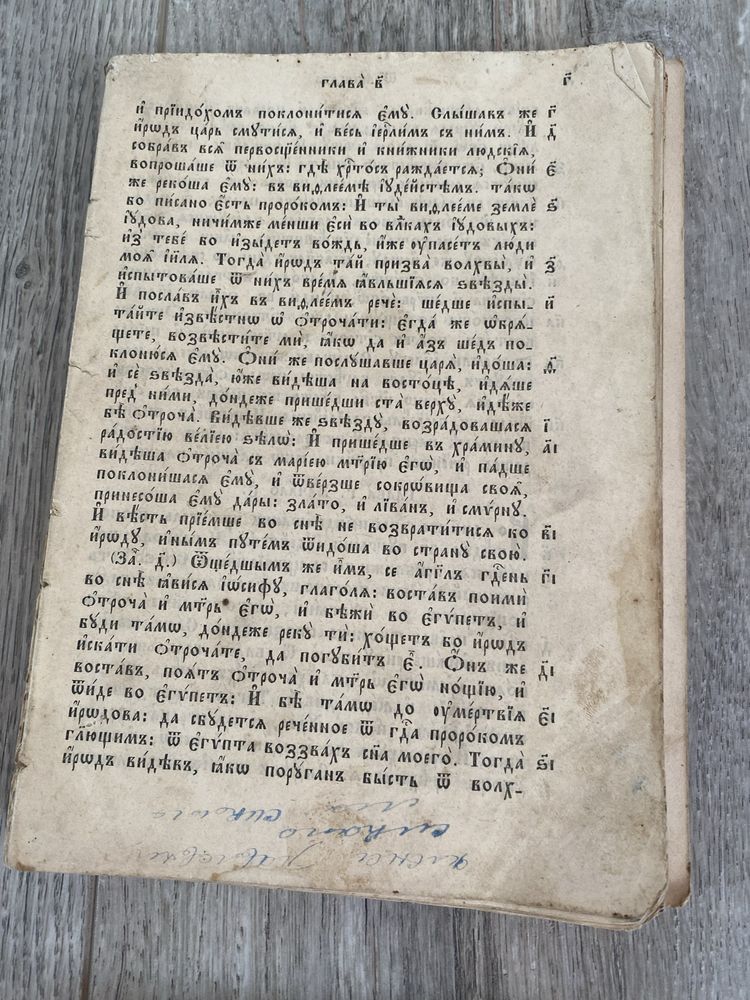 глава̀ в҃ г҃
и҆ прїидо́хомъ поклони́тисѧ є҆мꙋ̀. Слы́шавъ же г҃
и҆́рѡдъ ца́рь смꙋти́сѧ, и҆ ве́сь і҆ерⷭ҇ли́мъ съ ни́мъ. И҆ д҃
собра́въ всѧ̑ первосщ҃е́нники и҆ кни́жники людскі̑ѧ,
вопроша́ше ѿ ни́хъ: гдѣ̀ хрⷭ҇то́съ ражда́етсѧ; Ѻ҆ни́ є҃
же реко́ша є҆мꙋ̀: въ виѳлее́мѣ і҆ꙋде́йстѣмъ. та́кѡ
бо пи́сано є҆́сть прⷪ҇ро́комъ: И҆ ты̀ виѳлее́ме землѐ ѕ҃
і҆ꙋ́дова, ничи́мже ме́нши є҆сѝ во влⷣкахъ і҆ꙋ́довыхъ:
и҆з̾ тебе́ бо и҆зы́детъ во́ждь, и҆́же ᲂу҆пасе́тъ лю́ди
моѧ̑ і҆и҃лѧ. Тогда̀ и҆́рѡдъ та́й призва̀ волхвы̀, и҆ з҃
и҆спы́товаше ѿ ни́хъ вре́мѧ ꙗ҆́вльшїѧсѧ ѕвѣзды̀.
И҆ посла́въ и҆̀хъ въ виѳлее́мъ речѐ: ше́дше и҆спы- и҃
та́йте и҆звѣ́стнѡ ѡ҆ ѻ҆троча́ти: є҆гда́ же ѡ҆брѧ́-
щете, возвѣсти́те мѝ, ꙗ҆́кѡ да и҆ а҆́зъ ше́дъ по-
клоню́сѧ є҆мꙋ̀. Ѻ҆ни́ же послꙋ́шавше царѧ̀, и҆до́ша: ѳ҃
и҆ сѐ ѕвѣзда̀, ю҆́же ви́дѣша на восто́цѣ, и҆дѧ́ше
пред̾ ни́ми, до́ндеже прише́дши ста̀ верхꙋ̀, и҆дѣ́же
бѣ̀ ѻ҆троча̀. Ви́дѣвше же ѕвѣздꙋ̀, возра́довашасѧ і҃
ра́достїю ве́лїею ѕѣлѡ̀: И҆ прише́дше въ хра́минꙋ, а҃і
ви́дѣша ѻ҆троча̀ съ марі́ею мт҃рїю є҆гѡ̀, и҆ па́дше
поклони́шасѧ є҆мꙋ̀, и҆ ѿве́рзше сокрѡ́вища своѧ̑,
принесо́ша є҆мꙋ̀ да́ры: зла́то, и҆ лїва́нъ, и҆ смѵ́рнꙋ.
И҆ вѣ́сть прїе́мше во снѣ̀ не возврати́тисѧ ко в҃і
и҆́рѡдꙋ, и҆ны́мъ пꙋте́мъ ѿидо́ша во странꙋ̀ свою̀.
(За҄. д҃.) Ѿше́дшымъ же и҆̀мъ, се а҆́гг҃лъ гдⷭ҇ень г҃і
во снѣ̀ ꙗ҆ви́сѧ і҆ѡ́сифꙋ, глаго́лѧ: воста́въ поимѝ
ѻ҆троча̀ и҆ мт҃рь є҆гѡ̀, и҆ бѣжѝ во є҆гѵ́петъ, и҆
бꙋ́ди та́мѡ, до́ндеже рекꙋ́ ти: хо́щетъ бо и҆́рѡдъ
и҆ска́ти ѻ҆троча́те, да погꙋби́тъ є҆̀. Ѻ҆́нъ же д҃і
воста́въ, поѧ́тъ ѻ҆троча̀ и҆ мт҃рь є҆гѡ̀ но́щїю, и҆
ѿи́де во є҆гѵ́петъ: И҆ бѣ̀ та́мѡ до ᲂу҆ме́ртвїѧ є҃і
и҆́рѡдова: да сбꙋ́детсѧ рече́нное ѿ гдⷭ҇а прⷪ҇ро́комъ
гл҃ющимъ: ѿ є҆гѵ́пта воззва́хъ сн҃а моего̀. Тогда̀ ѕ҃і
и҆́рѡдъ ви́дѣвъ, ꙗ҆́кѡ порꙋ́ганъ бы́сть ѿ волх-